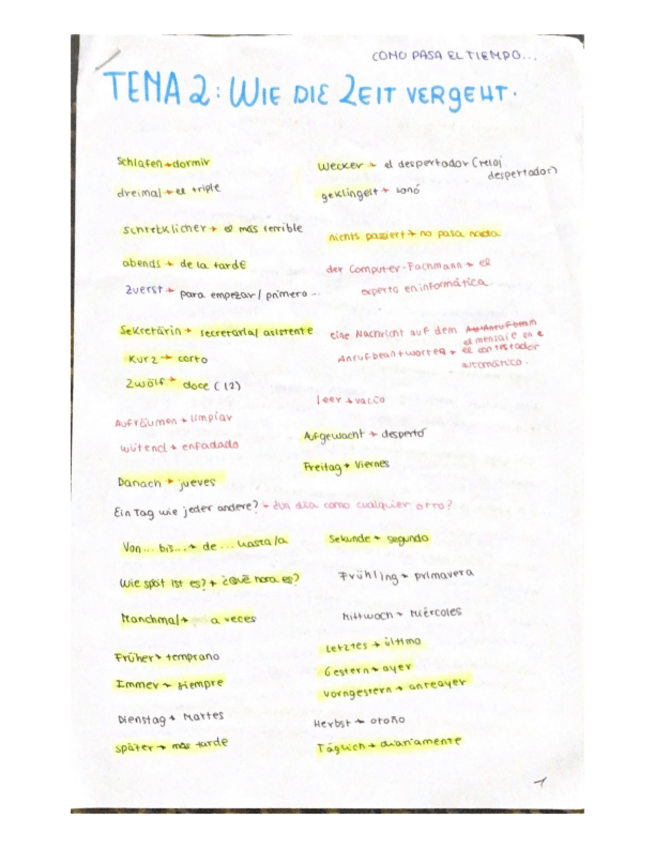 COMO PASA EL TIEMPO...
TEMA 2: WIE DIE ZEIT VERGEHT.
Schlafen → dormir
Wecker → el despertador (reloj despertador)
dreimal → el triple
geklingelt → sonó
schrecklicher → el más terrible
nichts passiert → no pasa nada
abends → de la tarde
der Computer-Fachmann → el experto en informática
Zuerst → para empezar / primero...
Sekretärin → secretaria/asistente
eine Nachricht auf dem Anrufbeantworter → el mensaje en el contestador automático.
Kurz → corto
Zwölf → doce (12)
leer → vacío
Aufräumen → limpiar
Aufgewacht → despertó
wütend → enfadado
Freitag → Viernes
Danach → jueves
Ein Tag wie jeder andere? → ¿un día como cualquier otro?
Von... bis... → de... hasta la
Sekunde → segundo
Wie spät ist es? → ¿Qué hora es?
Frühling → primavera
Manchmal → a veces
Mittwoch → Miércoles
Früher → temprano
Letztes → último
Immer → siempre
Gestern → ayer
Vorngestern → anteayer
Dienstag → Martes
Herbst → otoño
später → más tarde
Täglich → diariamente
1